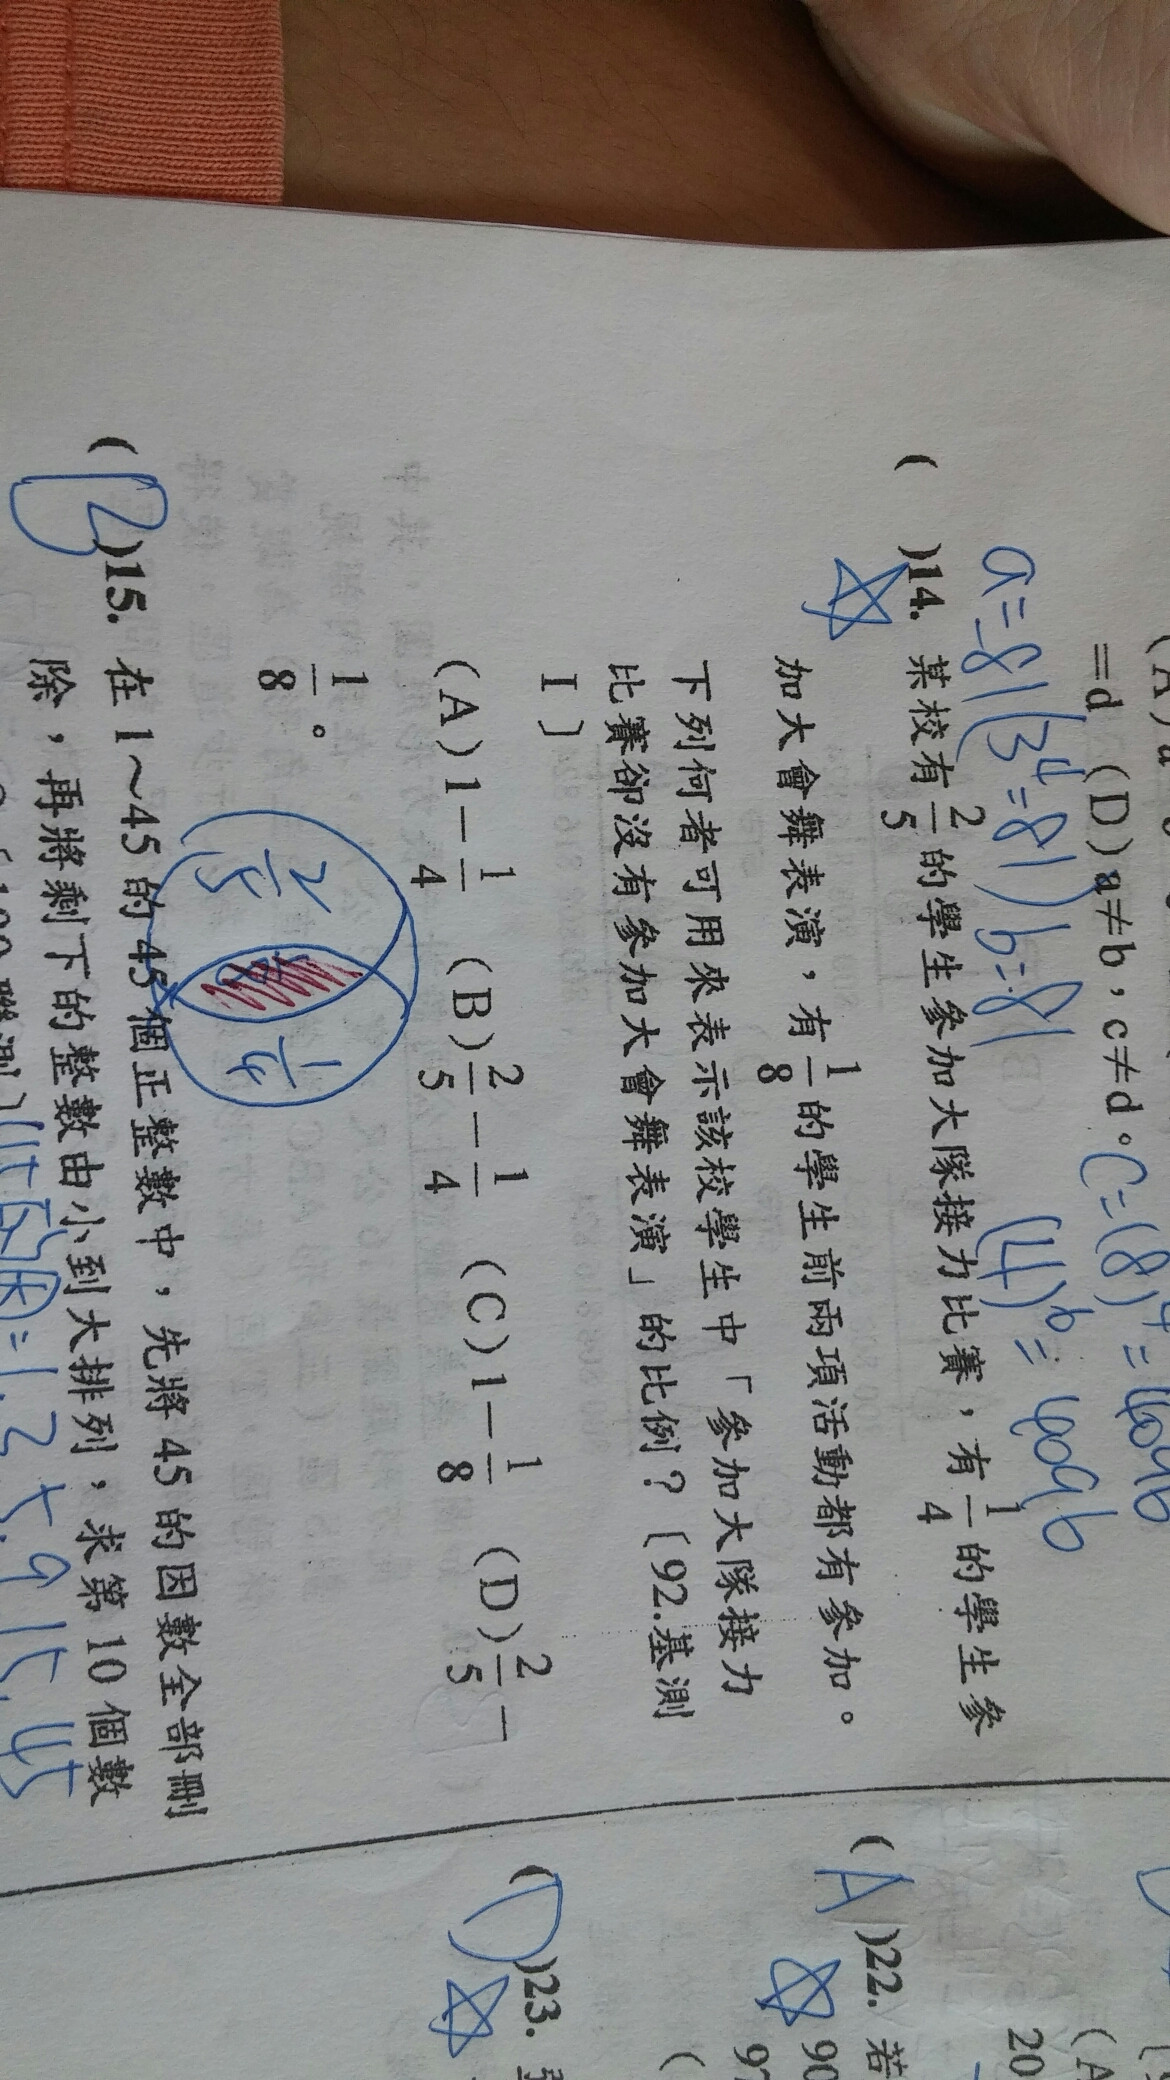 =d (D)a≠b，c≠d。C=(8)⁴=4096
a=81(3⁴=81) b=81 (4)⁶=4096
( )14. 某校有2/5的學生參加大隊接力比賽，有1/4的學生參
加大會舞表演，有1/8的學生前兩項活動都有參加。
下列何者可用來表示該校學生中「參加大隊接力
比賽卻沒有參加大會舞表演」的比例？〔92.基測
I〕
(A)1－1/4 (B)2/5－1/4 (C)1－1/8 (D)2/5－
1/8。
2/5
1/4
( )15. 在1～45的45個正整數中，先將45的因數全部刪
除，再將剩下的整數由小到大排列，求第10個數
45因=1.3.5.9.15.45
(A)22. 若
90
97
( )23.
20